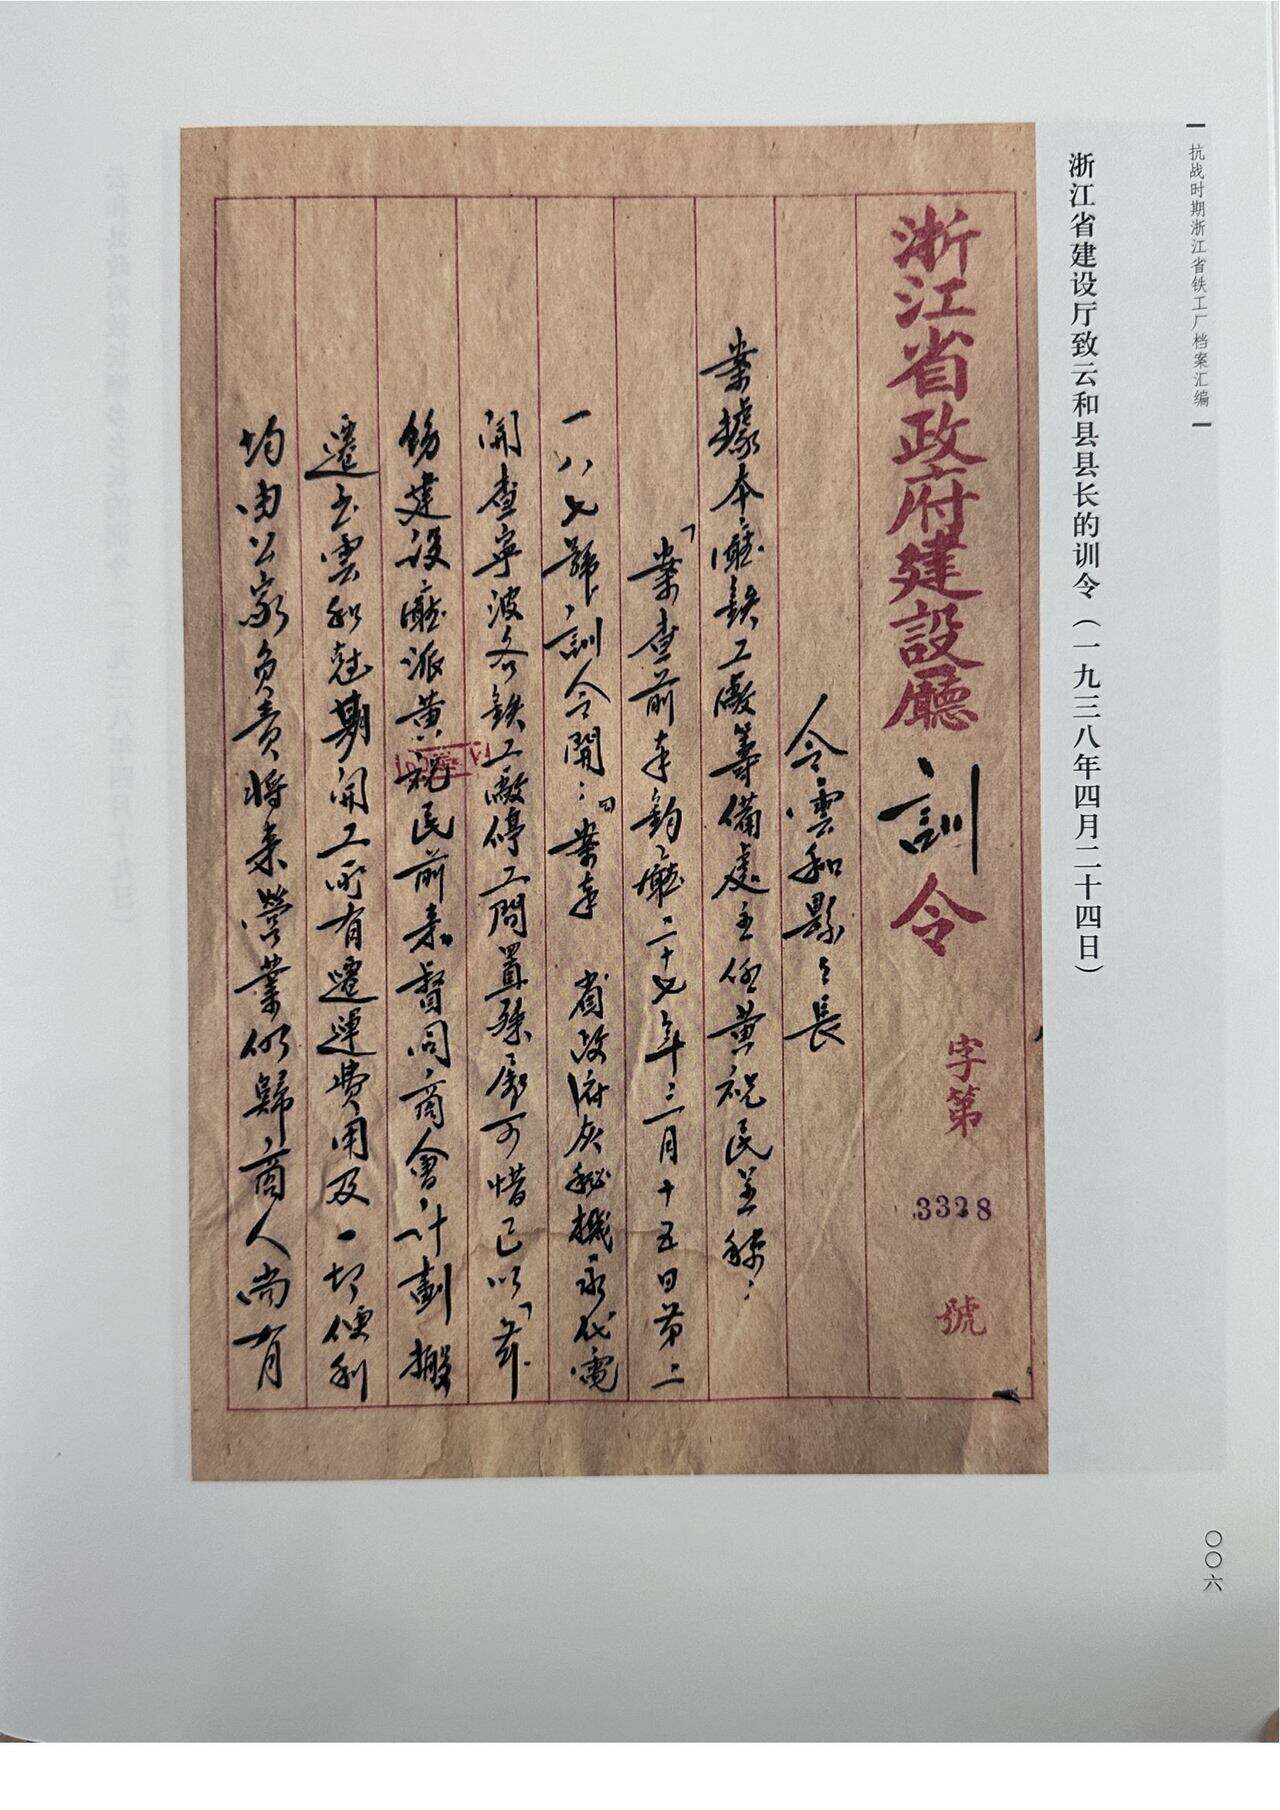 抗战时期浙江省铁工厂档案汇编
浙江省建设厅致云和县县长的训令（一九三八年四月二十四日）
浙江省政府建設廳訓令 字第3328號
令雲和縣縣長
案據本廳鉄工廠籌備處主任黄祝民呈稱：
「案查前奉鈞廳二十七年三月十五日第二
一八七號訓令開：『案奉 省政府灰秘機永代電
開查寧波各鉄工廠停工閒置殊屬可惜已以「
飭建設廳派黄祝民前来督同商會計劃搬
遷至雲和尅期開工所有遷運費用及一切便利
均由公家负责將来營業仍歸商人尚有
〇〇六